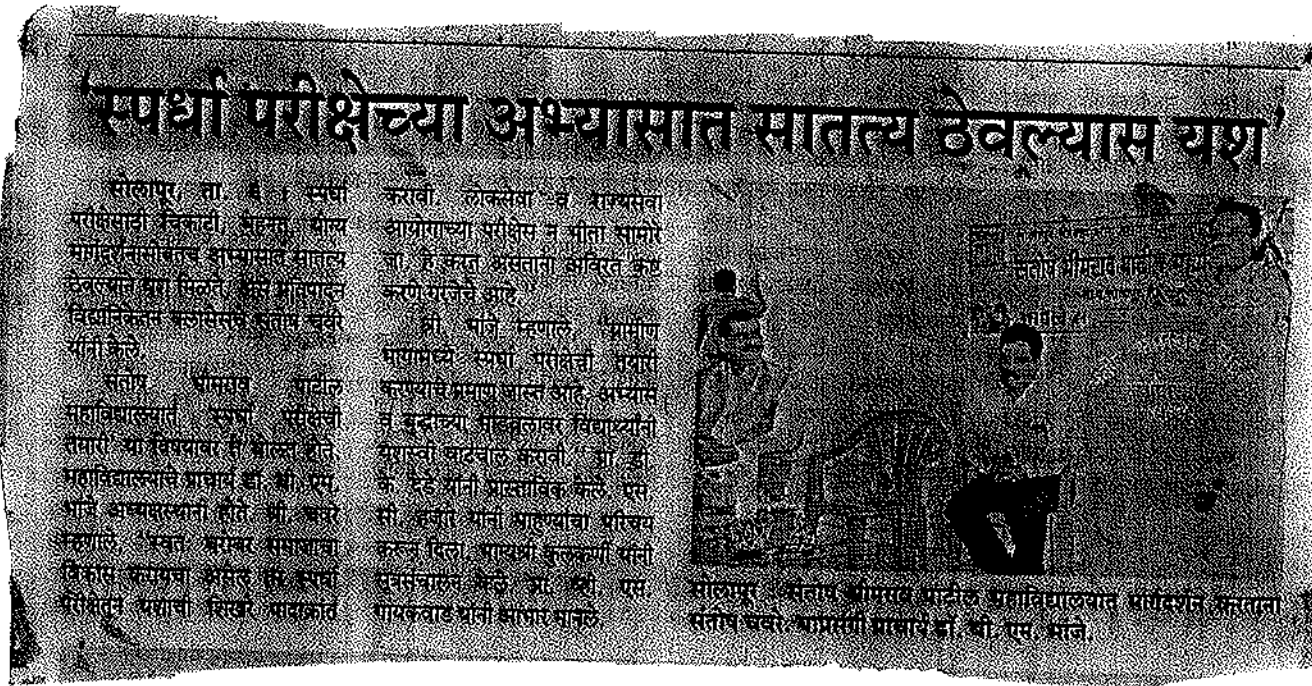 'स्पर्धा परीक्षेच्या अभ्यासात सातत्य ठेवल्यास यश'
सोलापूर, ता. ६ : स्पर्धा
परीक्षेसाठी चिकाटी, मेहनत, योग्य
मार्गदर्शनासोबतच अभ्यासात सातत्य
ठेवल्याने यश मिळते, असे प्रतिपादन
विद्यानिकेतन क्लासेसचे संतोष चवरे
यांनी केले.
संतोष भीमराव पाटील
महाविद्यालयात 'स्पर्धा परीक्षेची
तयारी' या विषयावर ते बोलत होते.
महाविद्यालयाचे प्राचार्य डॉ. बी. एम.
भांजे अध्यक्षस्थानी होते. श्री. चवरे
म्हणाले, "स्वतः बरोबर समाजाचा
विकास करायचा असेल तर स्पर्धा
परीक्षेतून यशाची शिखरे पादाक्रांत
करावी. लोकसेवा व राज्यसेवा
आयोगाच्या परीक्षेस न भीता सामोरे
जा. हे करत असताना अविरत कष्ट
करणे गरजेचे आहे."
श्री. भांजे म्हणाले, "ग्रामीण
भागामध्ये स्पर्धा परीक्षेची तयारी
करण्याचे प्रमाण जास्त आहे. अभ्यास
व बुद्धीच्या जोडबलावर विद्यार्थ्यांनी
यशस्वी वाटचाल करावी." प्रा. डी.
के. देडे यांनी प्रास्ताविक केले. एस.
सी. हजारे यांनी पाहुण्यांचा परिचय
करून दिला. गायत्री कुलकर्णी यांनी
सूत्रसंचालन केले. प्रा. व्ही. एस.
गायकवाड यांनी आभार मानले.
संतोष भीमराव पाटील
सोलापूर : संतोष भीमराव पाटील महाविद्यालयात मार्गदर्शन करताना
संतोष चवरे. याप्रसंगी प्राचार्य डॉ. बी. एम. भांजे.